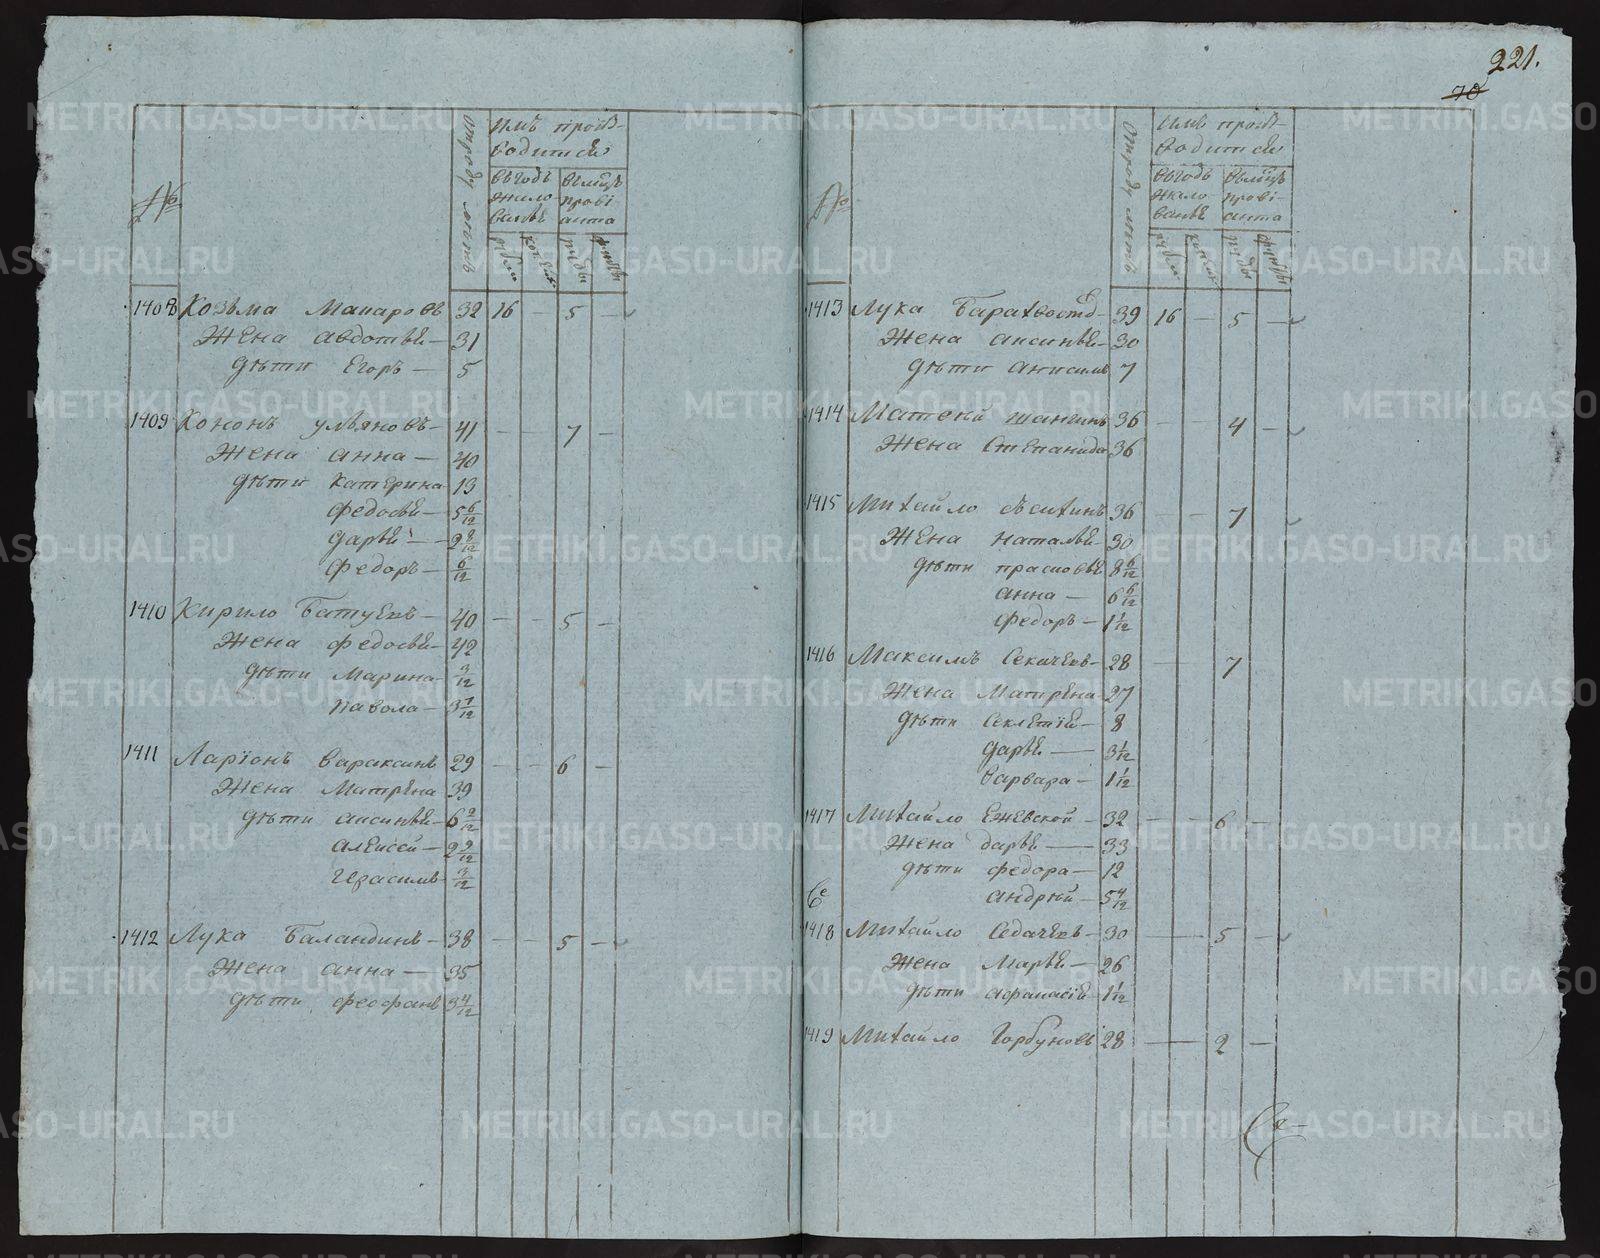 221.
70
№
отроду летъ
имъ произ-
водится
въ годъ
жало-
ванье
въ месяцъ
прови-
анта
рубли
копейки
пуды
фунты
1408 Козьма Макаровъ 32 16 — 5 —
Жена Авдотья — 31
дети Егоръ — 5
1409 Кононъ Ульяновъ — 41 — — 7 —
Жена анна — 40
дети Катерина 13
Федосья — 5 6/12
Дарья — 2 8/12
Федоръ — 6/12
1410 Кирило Батуевъ — 40 — — 5 —
Жена Федосья — 42
дети Марина 3/12
Павола — 3 7/12
1411 Ларіонъ Вараксинъ 29 — — 6 —
Жена Матрена 39
дети аксинья — 6 2/12
Алексей — 2 9/12
Герасимъ 3/12
1412 Лука Баландинъ — 38 — — 5 —
Жена анна — 35
дети Феофанъ 3 4/12
№
отроду летъ
имъ произ-
водится
въ годъ
жало-
ванье
въ месяцъ
прови-
анта
рубли
копейки
пуды
фунты
1413 Лука Барахвостов — 39 16 — 5 —
Жена аксинья — 30
дети анисимъ 7
1414 Матвей Шангинъ 36 — — 4 —
Жена Степанида 36
1415 Михайло 36 — — 7
Жена Наталья — 30
дети прасковья 8 6/12
анна — 6 6/12
Федоръ — 1 1/12
1416 Максимъ Секачевъ — 28 — 7
Жена Матрена 27
дети Секлетія — 8
Дарья — 3 1/12
Варвара — 1 1/12
1417 Михайло Ежевской — 32 — — 6 —
Жена дарья — 33
дети Федора — 12
андрей — 5 4/12
1418 Михайло Седачевъ — 30 — 5 —
Жена Марья — 26
дети афанасій 1 1/12
1419 Михайло Горбуновъ 28 — 2 —
METRIKI.GASO-URAL.RU